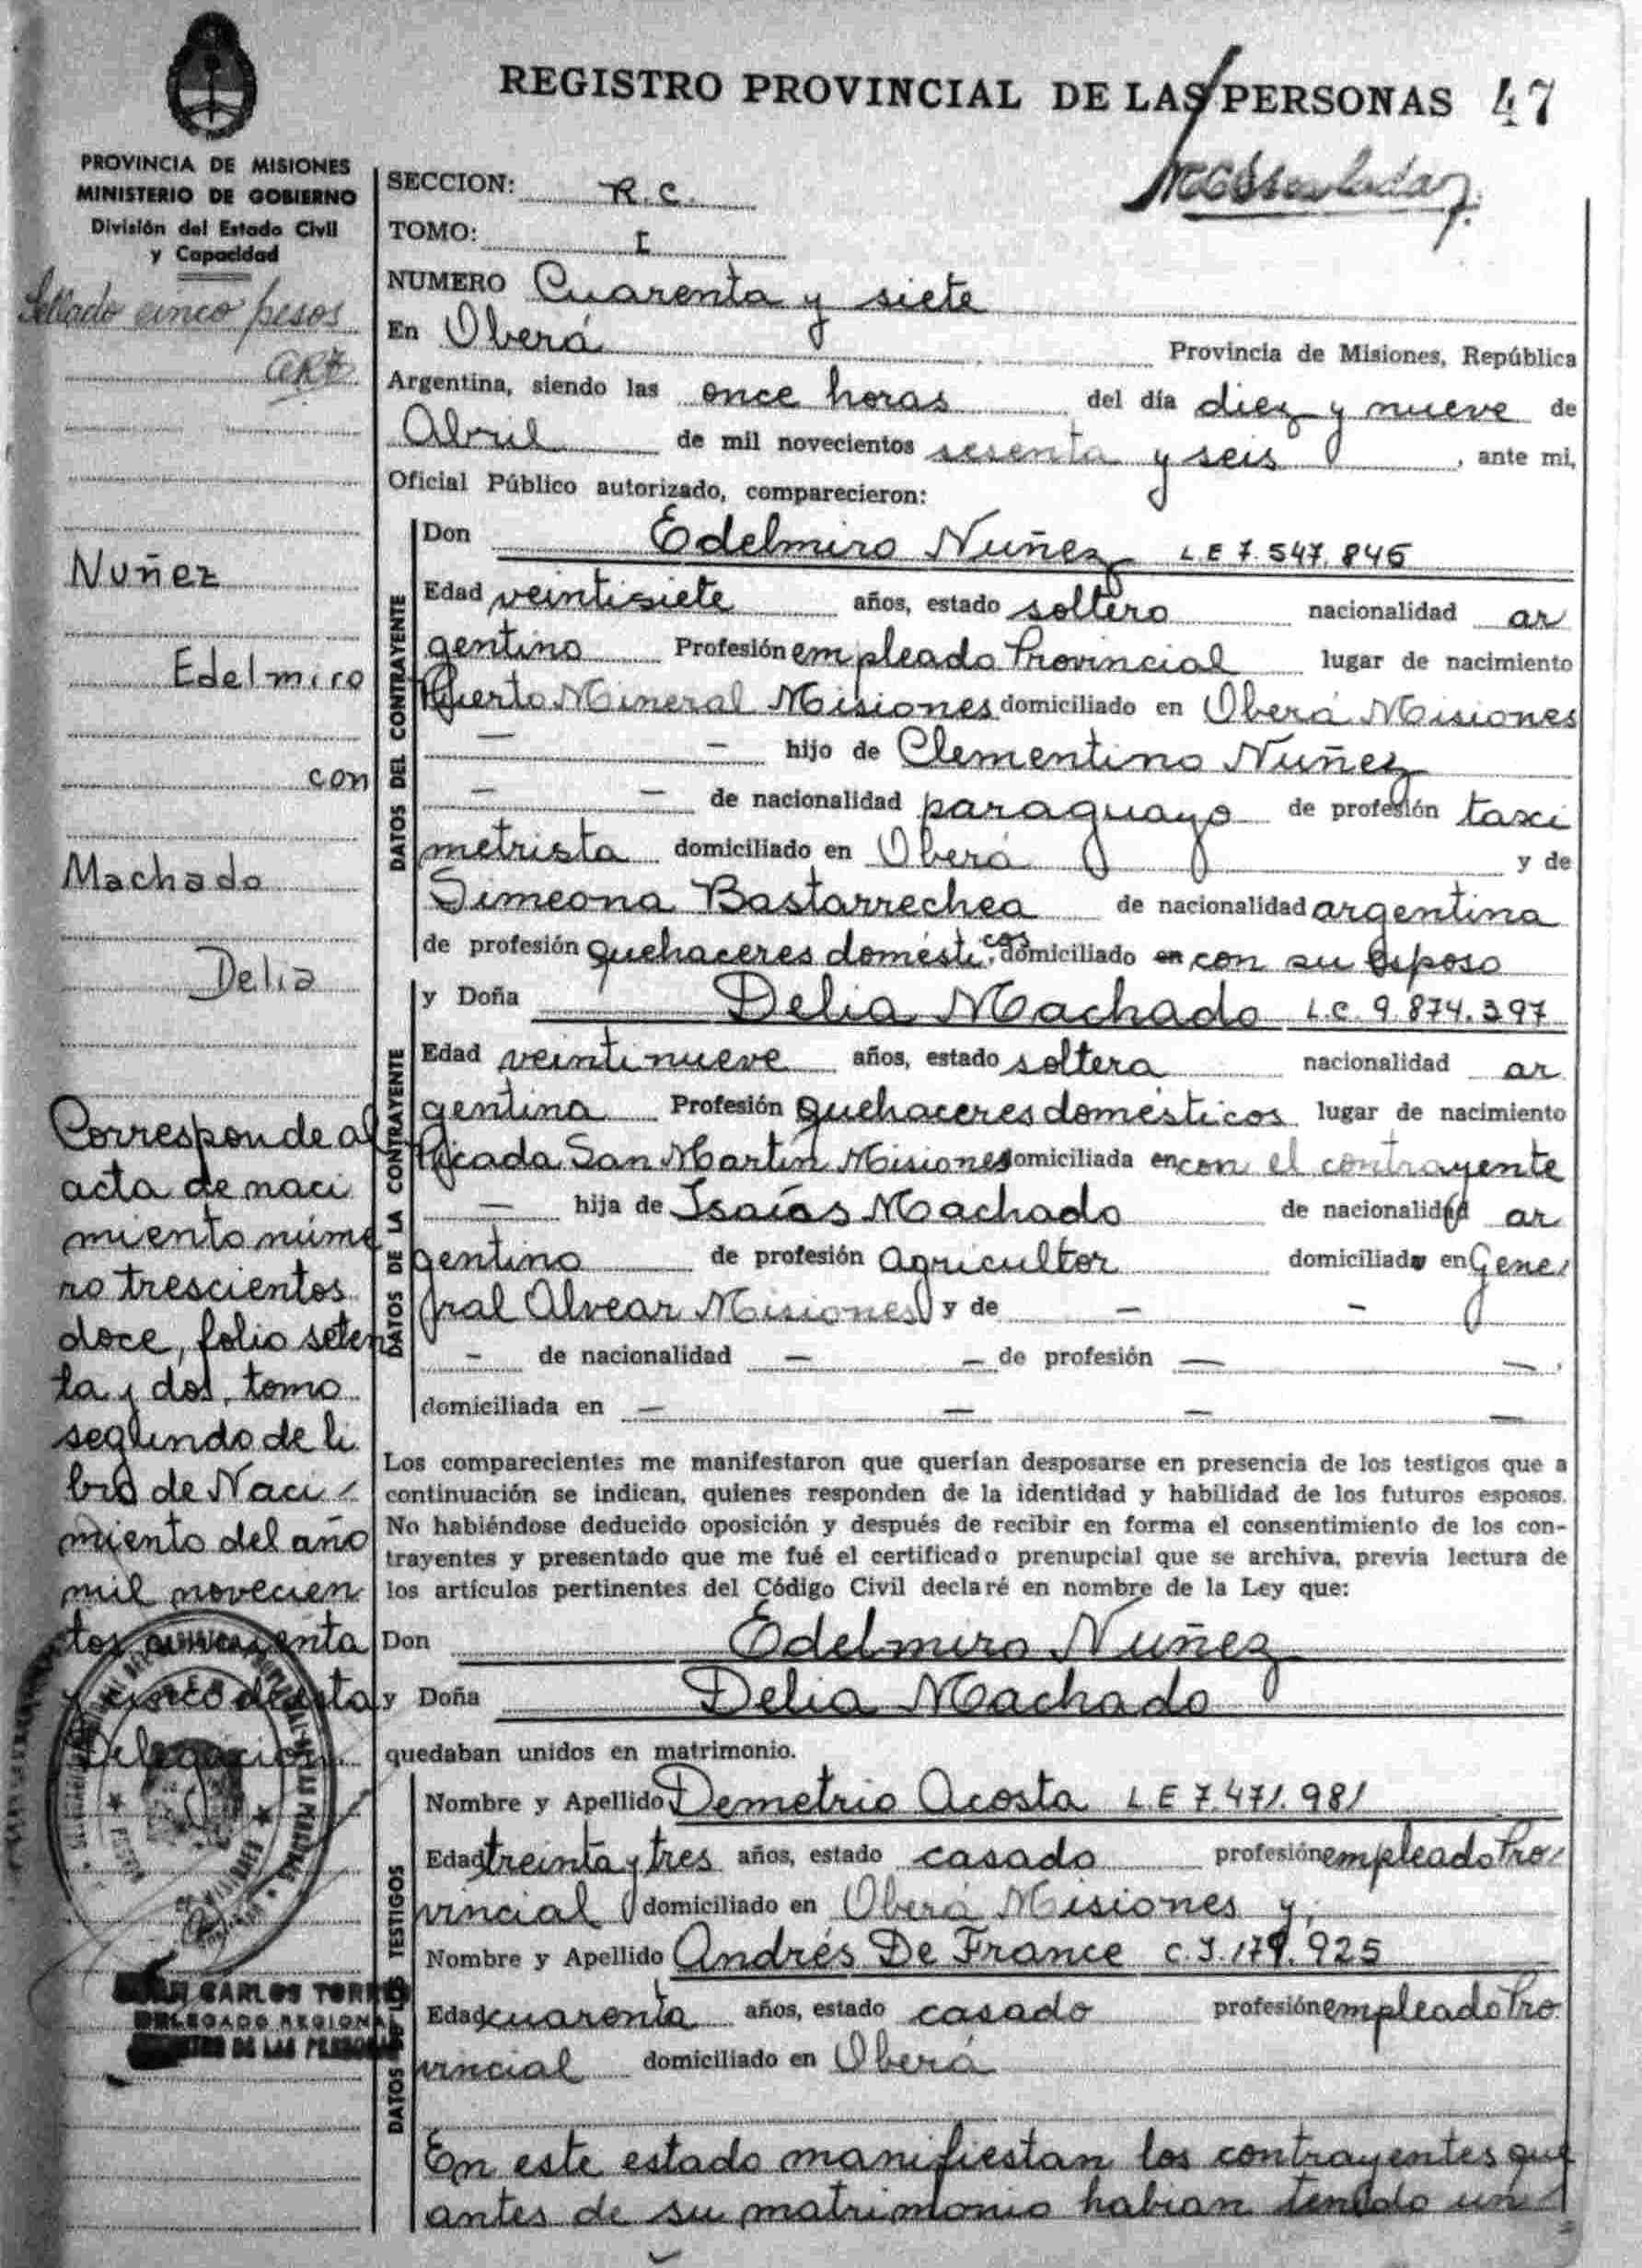 REGISTRO PROVINCIAL DE LAS PERSONAS 47
PROVINCIA DE MISIONES
MINISTERIO DE GOBIERNO
División del Estado Civil
y Capacidad
Sellado cinco pesos
Nuñez
Edelmiro
con
Machado
Delia
Corresponde al
acta de naci
miento núme
ro trescientos
doce, folio seten
ta y dos, tomo
segundo de li
bro de Naci
miento del año
mil novecien
tos cincuenta
y cinco de esta
Delegación
CARLOS TORRES
DELEGADO REGIONAL
REGISTRO DE LAS PERSONAS
SECCION: R.C.
TOMO: I
NUMERO Cuarenta y siete
En Oberá Provincia de Misiones, República
Argentina, siendo las once horas del día diez y nueve de
Abril de mil novecientos sesenta y seis, ante mi,
Oficial Público autorizado, comparecieron:
DATOS DEL CONTRAYENTE
Don Edelmiro Nuñez L.E 7.547.846
Edad veintisiete años, estado soltero nacionalidad ar
gentino Profesión empleado Provincial lugar de nacimiento
Puerto Mineral Misiones domiciliado en Oberá Misiones
— — hijo de Clementino Nuñez
— — de nacionalidad paraguayo de profesión taxi
metrista domiciliado en Oberá y de
Simeona Bastarrechea de nacionalidad argentina
de profesión quehaceres domésticos domiciliado en con su esposo
DATOS DE LA CONTRAYENTE
y Doña Delia Machado L.C. 9.874.397
Edad veintinueve años, estado soltera nacionalidad ar
gentina Profesión quehaceres domésticos lugar de nacimiento
Picada San Martín Misiones domiciliada en con el contrayente
— hija de Isaías Machado de nacionalidad ar
gentino de profesión Agricultor domiciliado en Gene
ral Alvear Misiones y de — —
— de nacionalidad — — de profesión — —
domiciliada en — — — —
Los comparecientes me manifestaron que querían desposarse en presencia de los testigos que a
continuación se indican, quienes responden de la identidad y habilidad de los futuros esposos.
No habiéndose deducido oposición y después de recibir en forma el consentimiento de los con-
trayentes y presentado que me fué el certificado prenupcial que se archiva, previa lectura de
los artículos pertinentes del Código Civil declaré en nombre de la Ley que:
Don Edelmiro Nuñez
y Doña Delia Machado
quedaban unidos en matrimonio.
DATOS DE LOS TESTIGOS
Nombre y Apellido Demetrio Acosta L.E 7.471.981
Edad treinta y tres años, estado casado profesión empleado Pro
vincial domiciliado en Oberá Misiones y,
Nombre y Apellido Andrés De France C.I. 179.925
Edad cuarenta años, estado casado profesión empleado Pro
vincial domiciliado en Oberá
En este estado manifiestan los contrayentes que
antes de su matrimonio habian tenido un